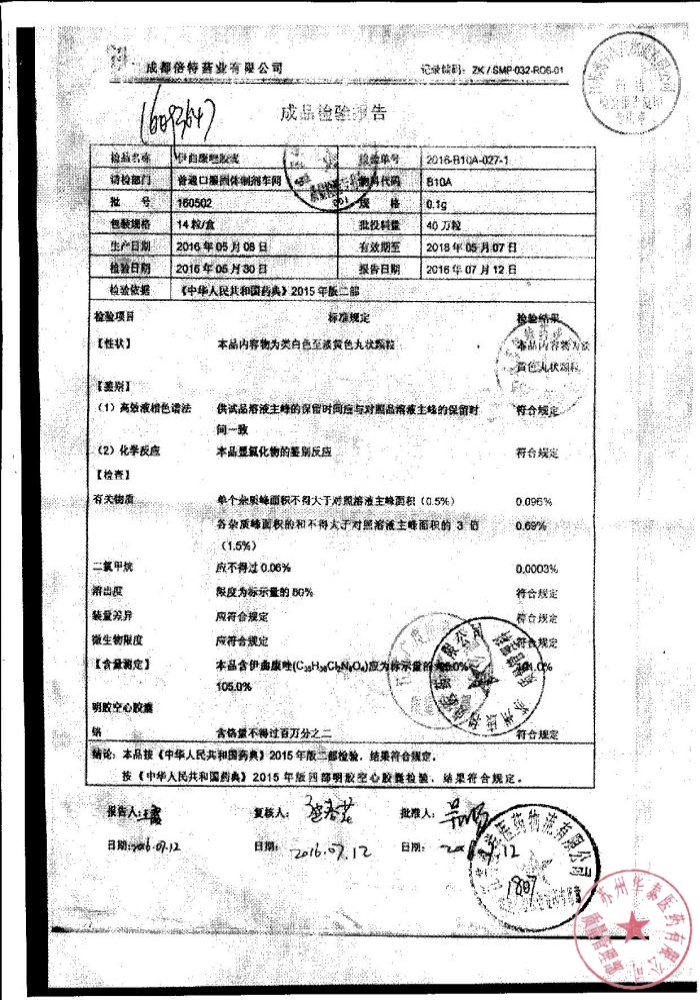 成都倍特药业有限公司 记录编码：ZK/SMP-032-R06-01
成品检验报告
检品名称 伊曲康唑胶囊 检验单号 2016-B10A-027-1
请检部门 普通口服固体制剂车间 物料代码 B10A
批 号 160502 规 格 0.1g
包装规格 14粒/盒 批投料量 40万粒
生产日期 2016年05月08日 有效期至 2018年05月07日
检验日期 2016年05月30日 报告日期 2016年07月12日
检验依据 《中华人民共和国药典》2015年版二部
检验项目 标准规定 检验结果
【性状】 本品内容物为类白色至淡黄色丸状颗粒 本品内容物为淡
黄色丸状颗粒
【鉴别】
（1）高效液相色谱法 供试品溶液主峰的保留时间应与对照品溶液主峰的保留时 符合规定
间一致
（2）化学反应 本品显氯化物的鉴别反应 符合规定
【检查】
有关物质 单个杂质峰面积不得大于对照溶液主峰面积（0.5%） 0.096%
各杂质峰面积的和不得大于对照溶液主峰面积的 3 倍 0.69%
（1.5%）
二氯甲烷 应不得过0.06% 0.0003%
溶出度 限度为标示量的80% 符合规定
装量差异 应符合规定 符合规定
微生物限度 应符合规定 符合规定
【含量测定】 本品含伊曲康唑(C₃₅H₃₈Cl₂N₈O₄)应为标示量的
105.0%
明胶空心胶囊
铬 含铬量不得过百万分之二 符合规定
结论：本品按《中华人民共和国药典》2015年版二部检验，结果符合规定。
按《中华人民共和国药典》2015年版四部明胶空心胶囊检验，结果符合规定。
报告人： 复核人： 批准人：
日期：2016.07.12 日期：2016.07.12 日期：
1807
苏州华泰医药有限公司